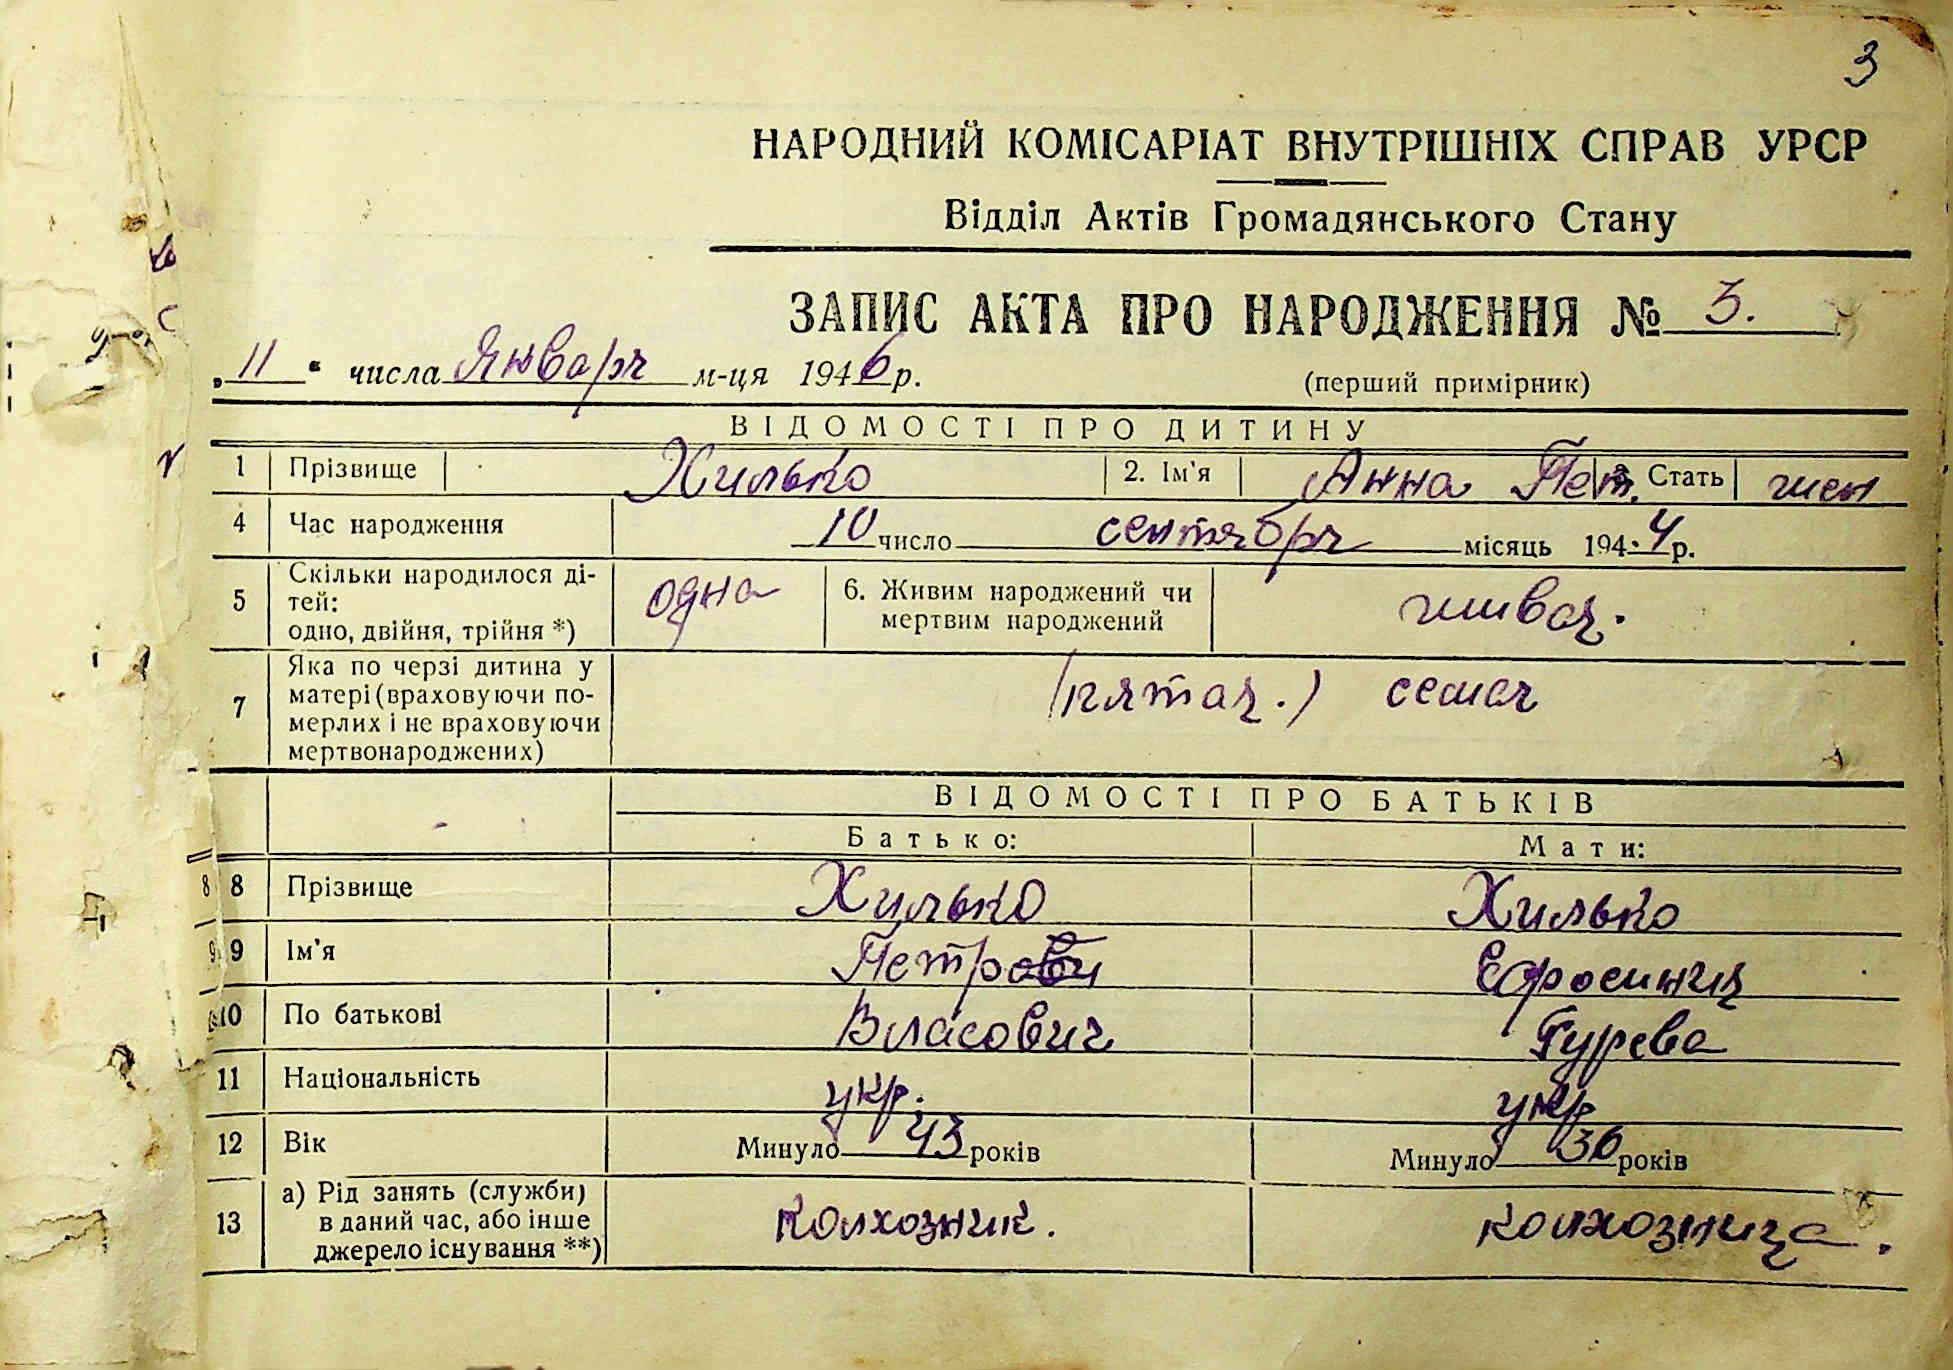 3
НАРОДНИЙ КОМІСАРІАТ ВНУТРІШНІХ СПРАВ УРСР
Відділ Актів Громадянського Стану
ЗАПИС АКТА ПРО НАРОДЖЕННЯ № 3.
„11“ числа Января м-ця 1946 р.
(перший примірник)
ВІДОМОСТІ ПРО ДИТИНУ
1 Прізвище Хилько 2. Ім'я Анна Пет. 3. Стать жен
4 Час народження 10 число сентября місяць 194.4 р.
5 Скільки народилося ді-
тей:
одно, двійня, трійня *) одна 6. Живим народжений чи
мертвим народжений живая.
7 Яка по черзі дитина у
матері (враховуючи по-
мерлих і не враховуючи
мертвонароджених) (пятая.) семея
ВІДОМОСТІ ПРО БАТЬКІВ
Батько: Мати:
8 8 Прізвище Хилько Хилько
9 9 Ім'я Петрови Ефросиния
10 По батькові Власович Гурева
11 Національність укр. укр
12 Вік Минуло 43 років Минуло 36 років
13 а) Рід занять (служби)
в даний час, або інше
джерело існування **) колхозник. колхозница.